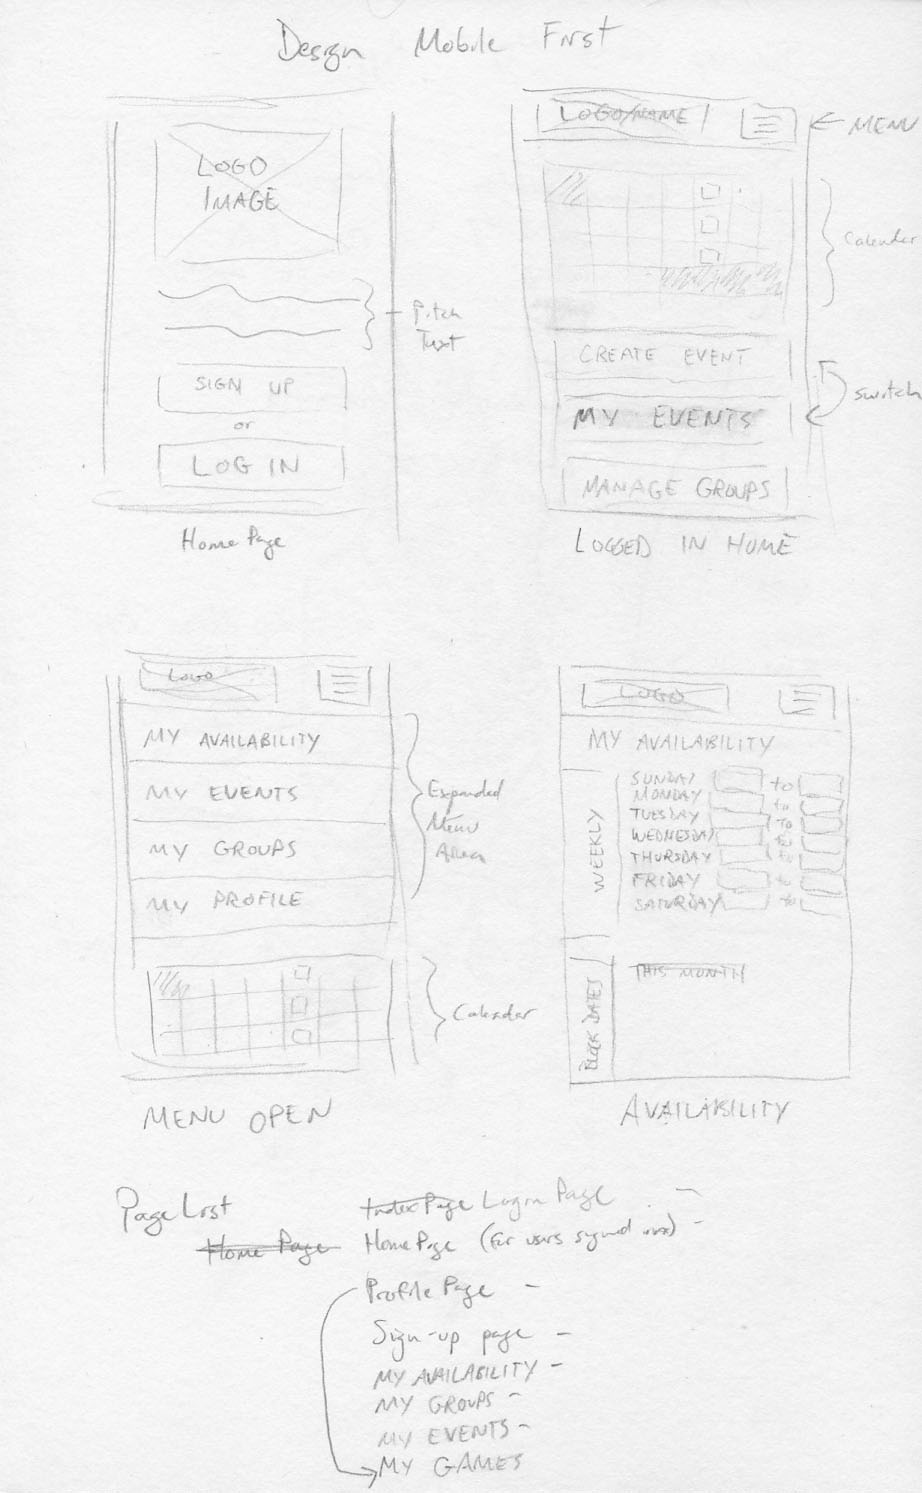 Design Mobile First
LOGO
IMAGE
Pitch
Text
SIGN UP
or
LOG IN
Home Page
LOGO/NAME
MENU
Calendar
CREATE EVENT
switch
MY EVENTS
MANAGE GROUPS
LOGGED IN HOME
LOGO
MY AVAILABILITY
MY EVENTS
MY GROUPS
MY PROFILE
Expanded
Menu
Area
Calendar
MENU OPEN
LOGO
MY AVAILABILITY
WEEKLY
SUNDAY to
MONDAY to
TUESDAY to
WEDNESDAY to
THURSDAY to
FRIDAY to
SATURDAY to
BLOCK DATES
THIS MONTH
AVAILABILITY
Page List
Index Page Login Page
Home Page Home Page (for users signed in)
Profile Page -
Sign-up page -
MY AVAILABILITY -
MY GROUPS -
MY EVENTS -
MY GAMES